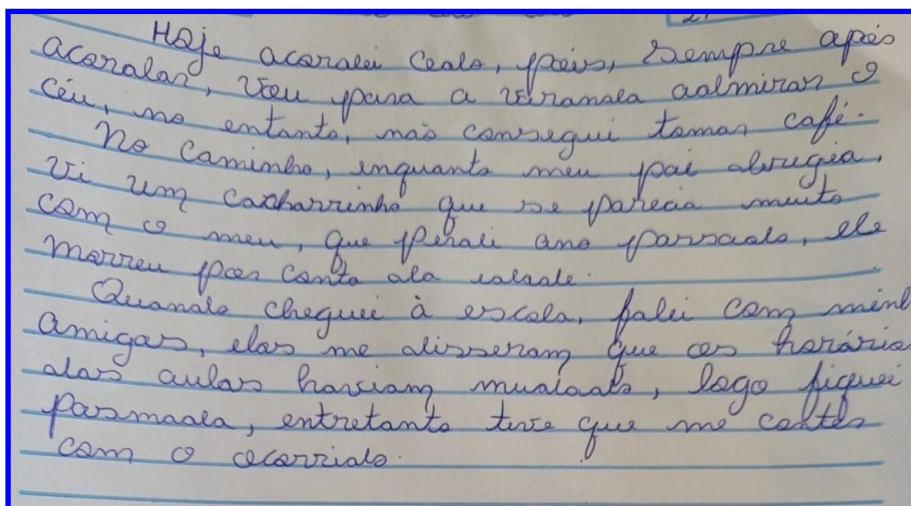 Hoje acordei cedo, pois, sempre após
acordar, vou para a varanda admirar o
céu, no entanto, não consegui tomar café.
No caminho, enquanto meu pai dirigia,
vi um cachorrinho que se parecia muito
com o meu, que perdi ano passado, ele
morreu por conta da idade.
Quando cheguei à escola, falei com minh
amigas, elas me disseram que os horário
das aulas haviam mudado, logo fiquei
pasmada, entretanto tive que me conter
com o ocorrido.